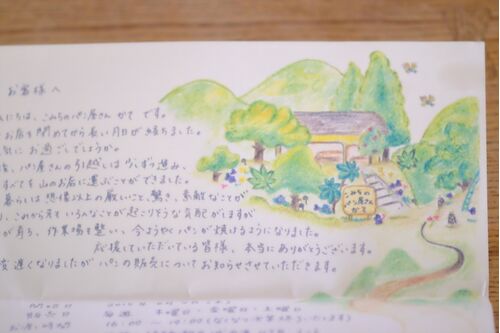 お客様へ
んにちは、こみちのパン屋さん かて です。
お店を閉めてから長い月日が経ちました。
気にお過ごしでしょうか。
後、パン屋さんの引越しは少しずつ進み、
すべてを山のお店に運ぶことができました。
暮らしは想像以上の厳しいこと、驚き、素敵なことが
り、これから先もいろんなことが起こりそうな気配がしますが
が育ち、作業場も整い、今ようやくパンが焼けるようになりました。
応援していただいている皆様、本当にありがとうございます。
変遅くなりましたがパンの販売についてお知らせさせていただきます。
毎週 木曜日・金曜日・土曜日
お店時間
こみちの
パン屋さん
かて